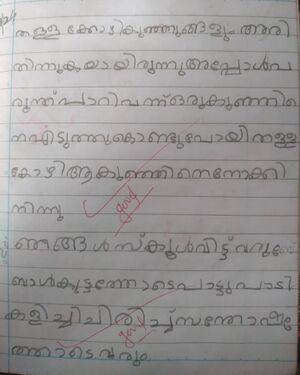 തള്ള കോഴികുഞ്ഞുങ്ങളും അരി
തിന്നുകയായിരുന്നു അപ്പോൾ പ
രുന്ത് പാറി വന്ന് ഒരു കുഞ്ഞിനെ
എടുത്തുകൊണ്ടുപോയി തള്ള
കോഴി ആ കുഞ്ഞിനെ നോക്കി
നിന്നു
good
ഞങ്ങൾ സ്കൂൾ വിട്ട് വരുമ്പോ
ബാൾ കൂട്ടത്തോടെ പാട്ടു പാടി
കളിച്ച് ചിരിച്ച് സന്തോഷ
ത്തോടെ വരും
good